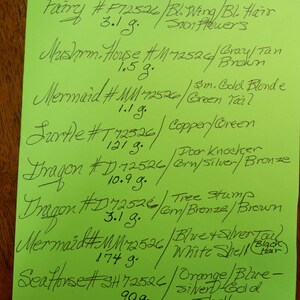 Fairy #F72526/Bl. Wing/Bl. Hair
3.1 g. Iron Flowers
Mushrm. House #M72526/Gray/Tan
1.5 g. Brown
Mermaid #MM72526/Sm. Gold Blonde
1.1 g. Green Tail
Turtle #T72526/Copper/Green
121 g.
Dragon #D72526/Door Knocker
10.9 g. Grn/Silver/Bronze
Dragon #D72526/Tree Stump
3.1 g. Grn/Bronze/Brown
Mermaid #MM72526/Blue & Silver Tail
174 g. White Shell (Black Hair)
Sea Horse #SH72526/Orange/Blue-
90g. Silver & Gold